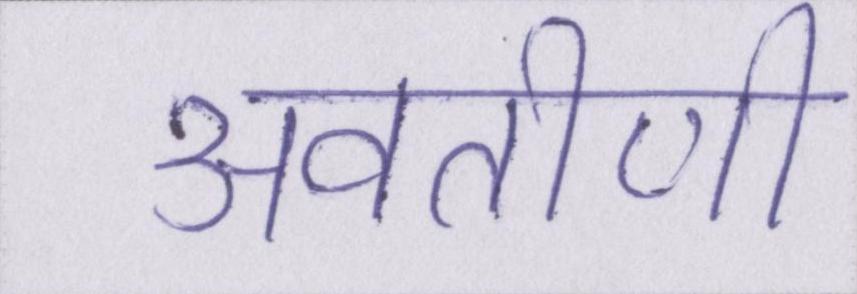 अवतीणी